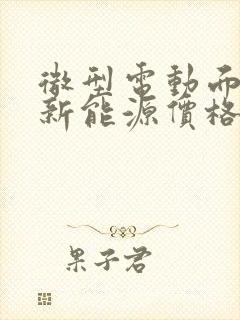 微型電動而
新能源價格
果子君